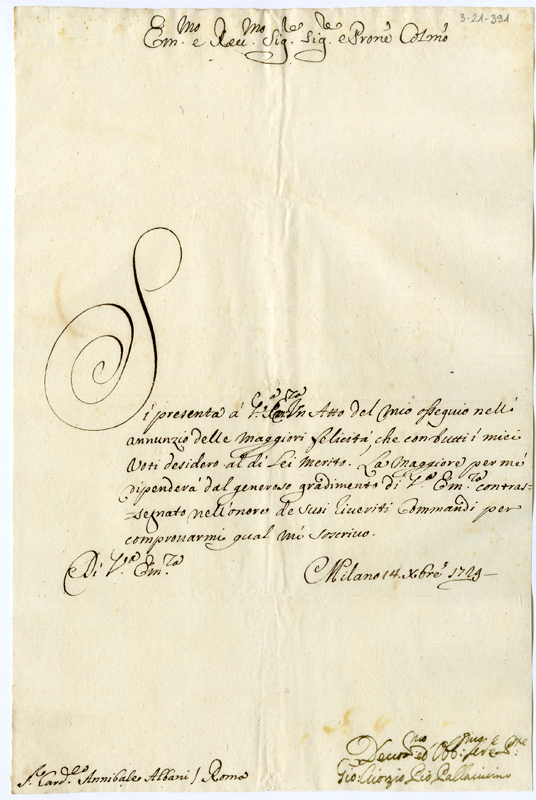 3-21-391
Em.mo e Reu.mo Sig.re Sig.re e Prone Colmo
Si presenta á V.a Em.za Un Atto del mio ossequio nell'
annunzio delle maggiori felicitá, che con tutti i miei
Voti desidero al di Lei Merito. La Maggiore per mé
dipenderá dal generoso gradimento di V.a Em.za contras=
=segnato nell'onore de suoi riueriti Commandi per
comprouarmi qual mi soscriuo.
Di V.a Em.za
Milano 14. Xbre 1729
S.r Card.le Annibale Albani / Roma
Deuo.mo ed Obb.mo Ser.e
Gio: Pallauicino